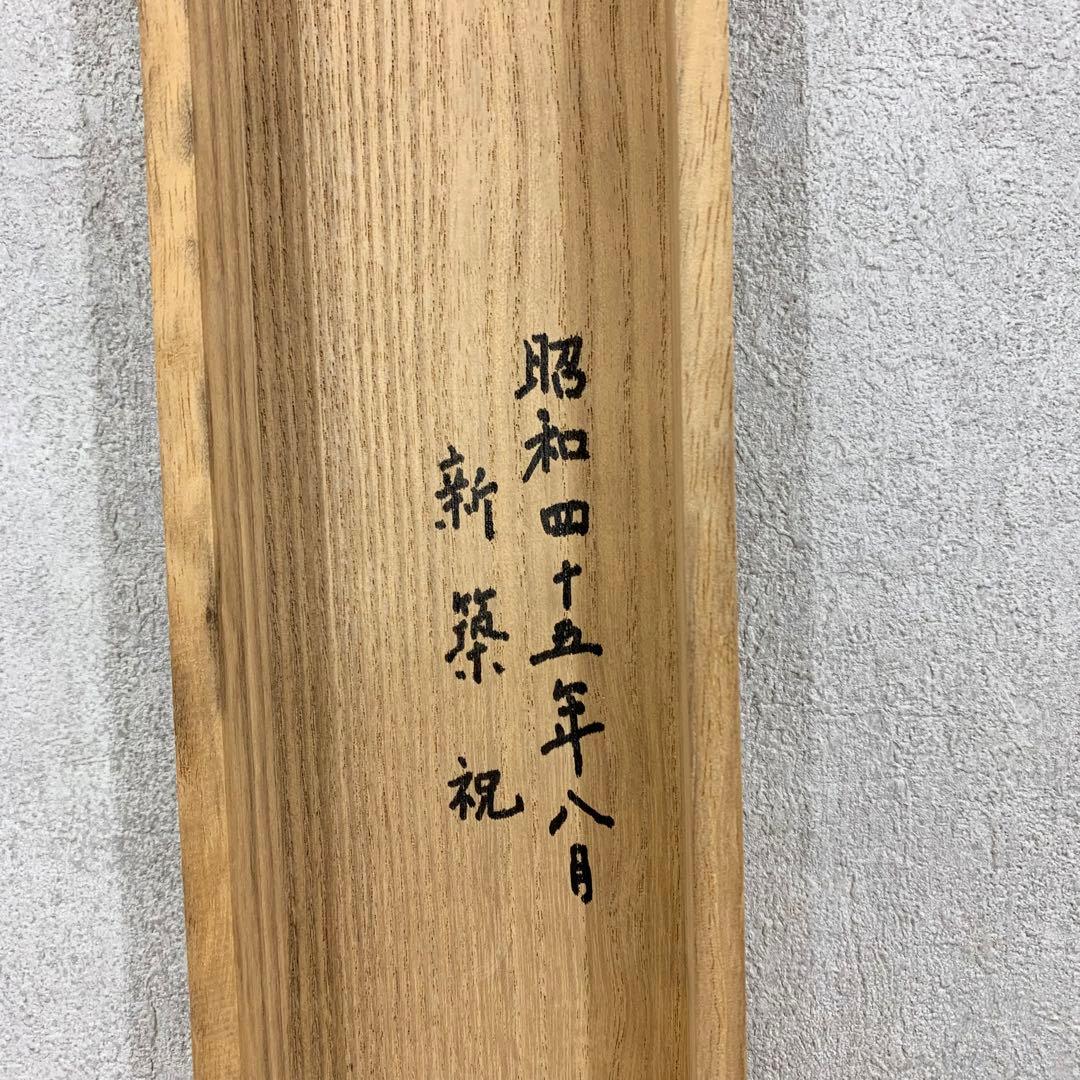 昭和四十五年八月
新築祝